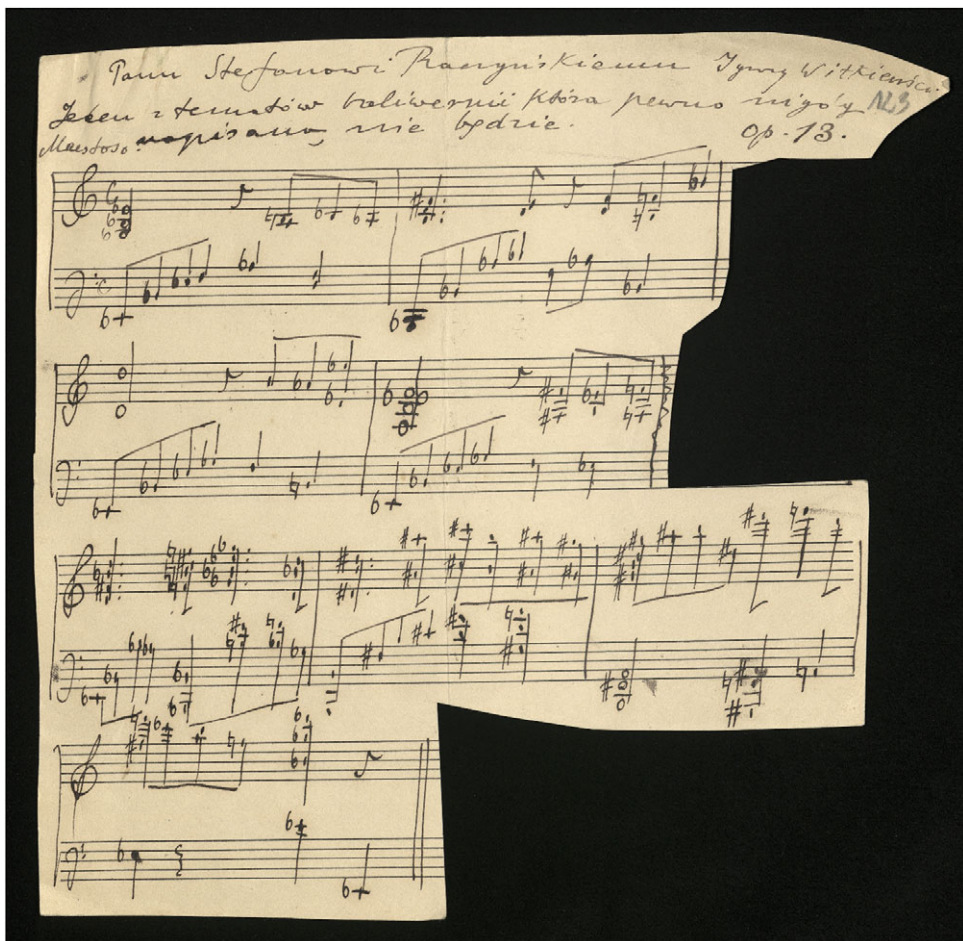 Panu Stefanowi Raczyńskiemu Ignacy Witkiewicz.
Jeden z tematów baliwernii która pewno nigdy
Maestoso. napisaną nie będzie. op. 13.